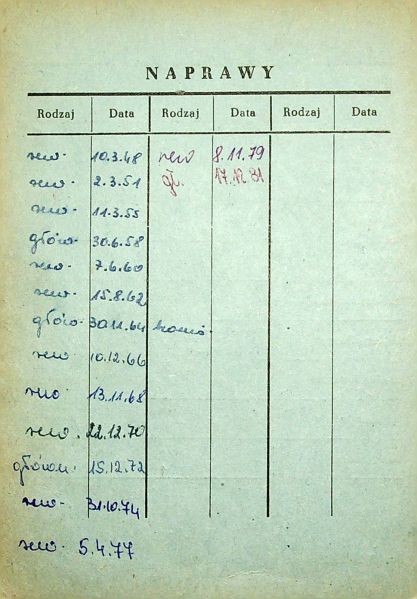 NAPRAWY
Rodzaj Data Rodzaj Data Rodzaj Data
rew. 10.3.48 rew 8.11.79
rew. 2.3.51 gł. 17.12.81
rew. 11.3.55
główn. 30.6.58
rew. 7.6.60
rew. 15.8.62
główn. 30.11.64
rew. 10.12.66
rew. 13.11.68
rew. 22.12.70
główn. 15.12.72
rew. 31.10.74
rew. 5.4.77